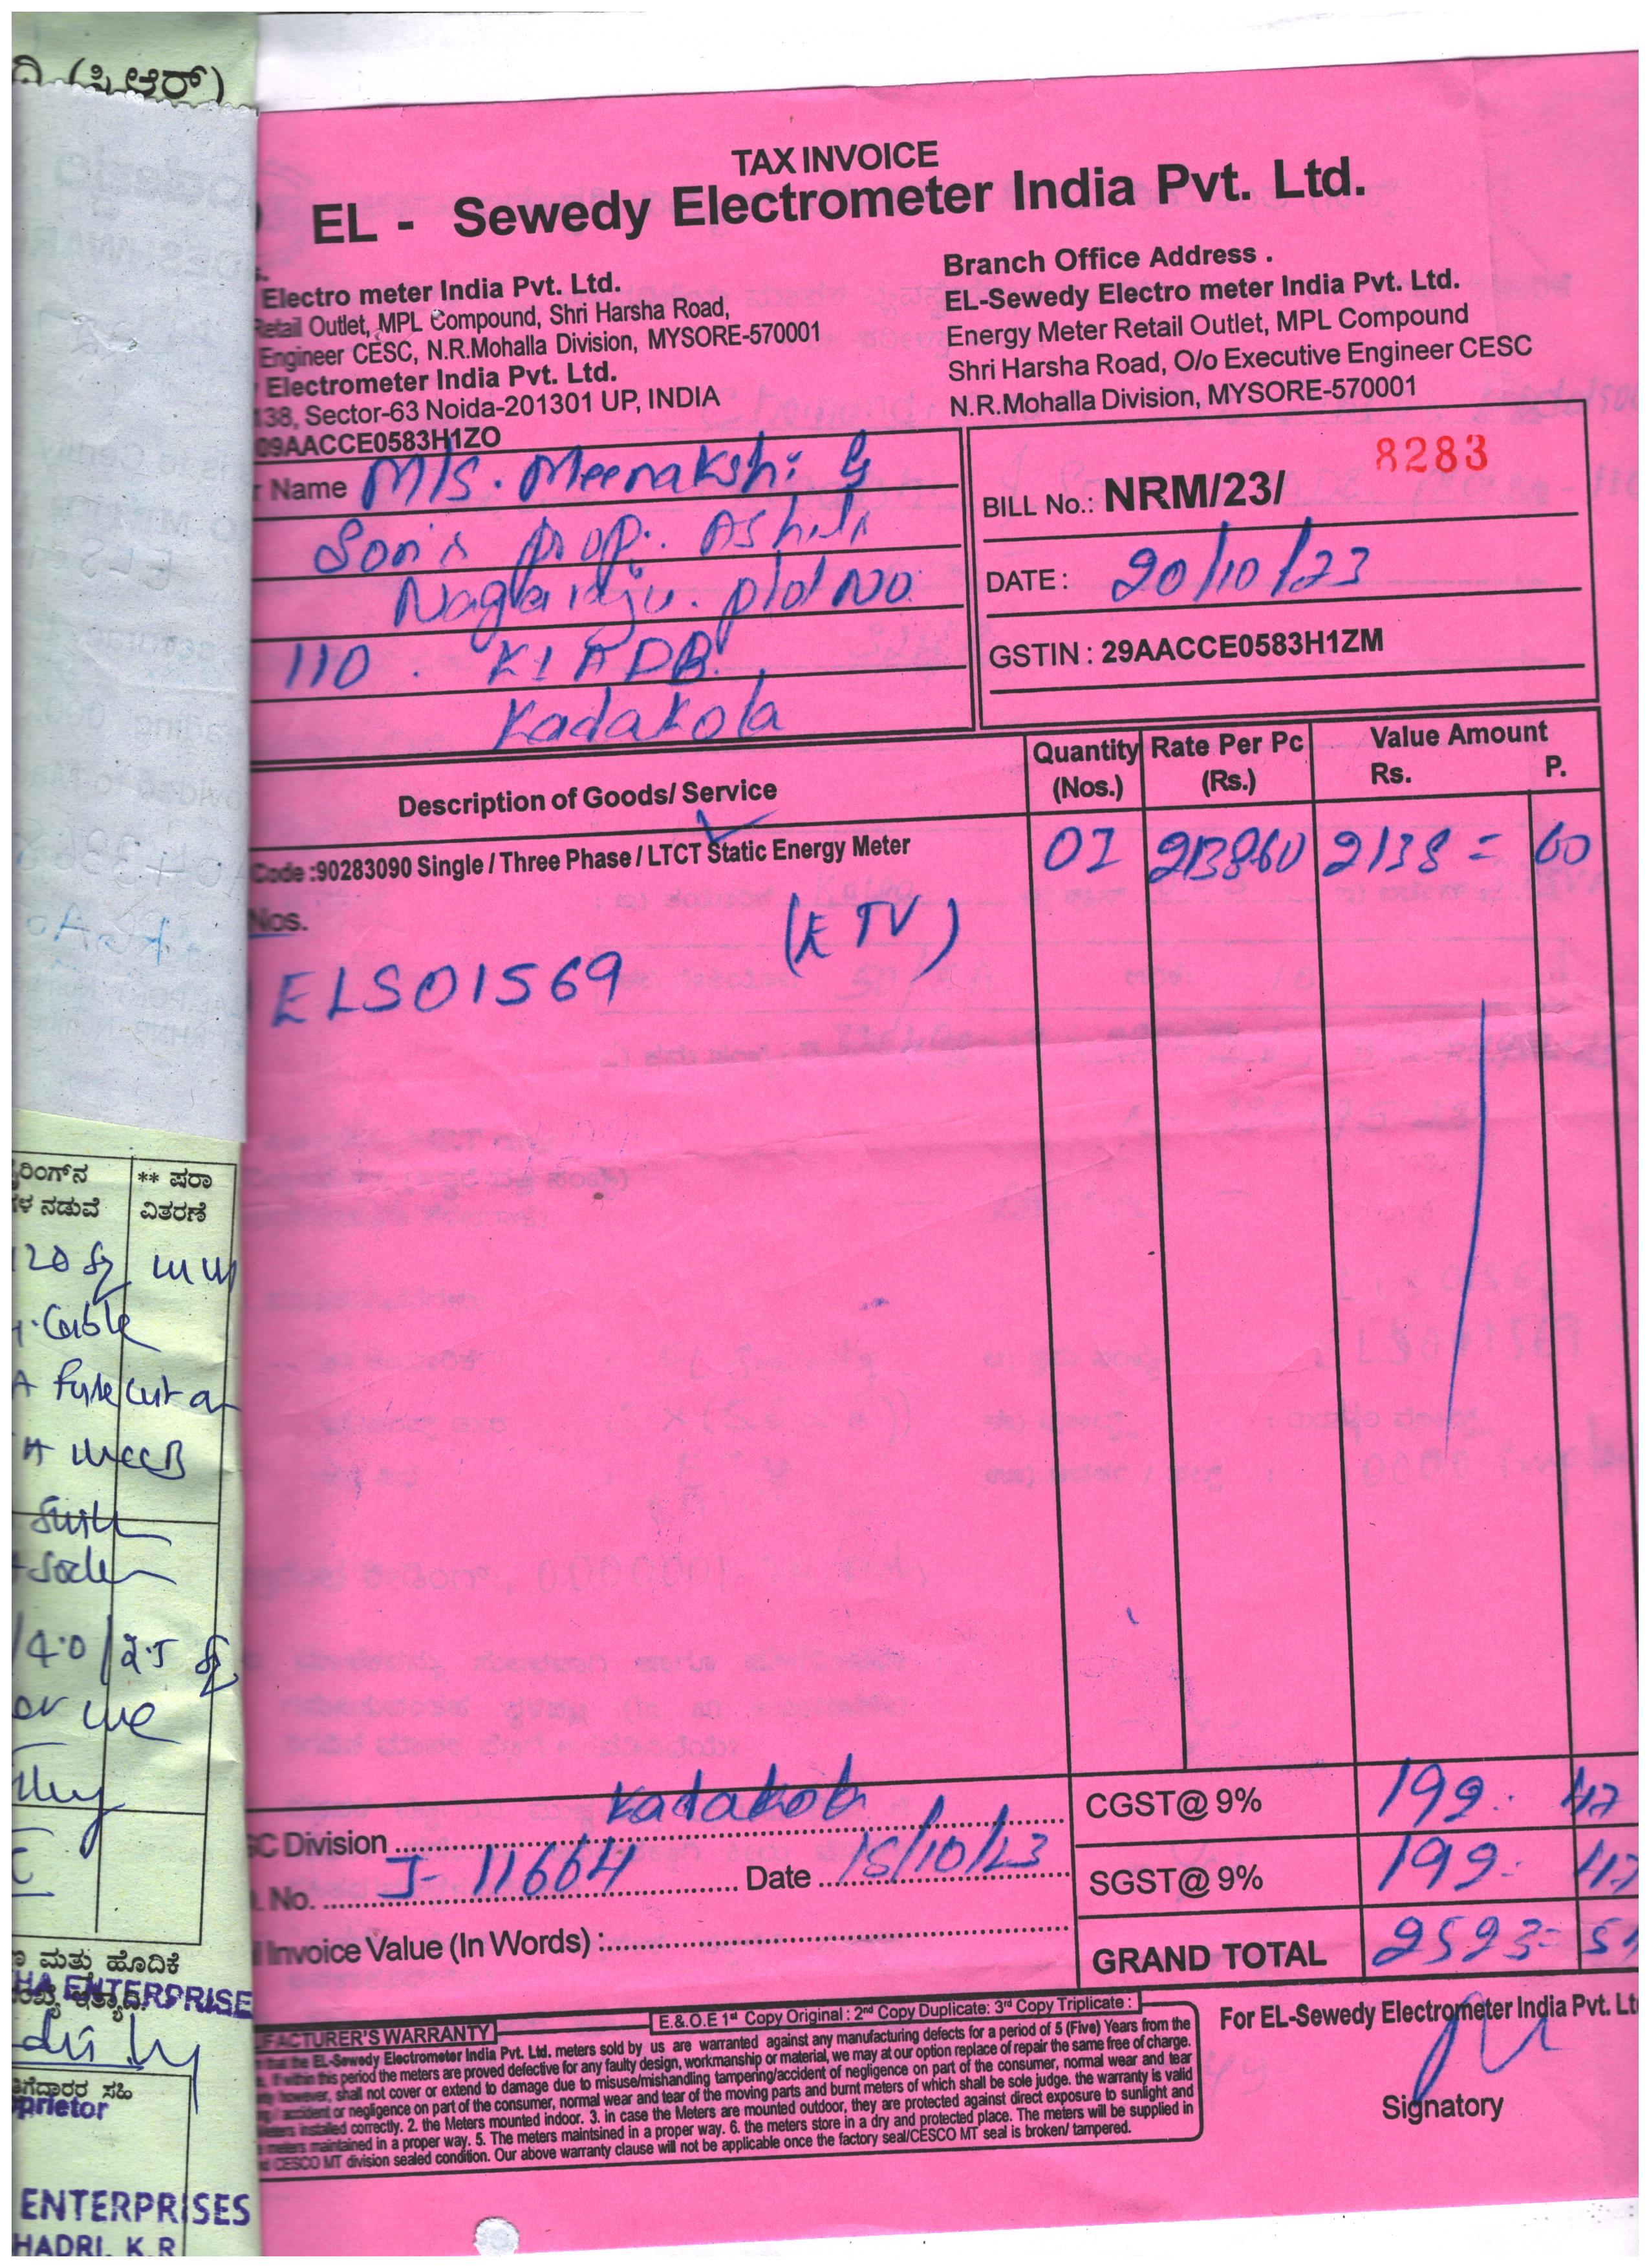 ದಿ (ಸಿ.ಆರ್)
TAX INVOICE
EL - Sewedy Electrometer India Pvt. Ltd.
Electro meter India Pvt. Ltd.
Retail Outlet, MPL Compound, Shri Harsha Road,
Engineer CESC, N.R.Mohalla Division, MYSORE-570001
Electrometer India Pvt. Ltd.
138, Sector-63 Noida-201301 UP, INDIA
09AACCE0583H1ZO
Branch Office Address .
EL-Sewedy Electro meter India Pvt. Ltd.
Energy Meter Retail Outlet, MPL Compound
Shri Harsha Road, O/o Executive Engineer CESC
N.R.Mohalla Division, MYSORE-570001
r Name M/s. Meenakshi G
Son's prop. Ashik
Nagaraju. plot No
110 . KIADB.
Kadakola
8283
BILL No.: NRM/23/
DATE : 20/10/23
GSTIN : 29AACCE0583H1ZM
Description of Goods/ Service
Quantity (Nos.)
Rate Per Pc (Rs.)
Value Amount
Rs. P.
Code :90283090 Single / Three Phase / LTCT Static Energy Meter 01 213860 2138 = 60
Nos.
(ETV)
ELS01569
ರಿಂಗ್‌ನ ** ಪರಾ
ಳ ನಡುವೆ ವಿತರಣೆ
120 sq
Cable
A fuse cut
A MCCB
/4.0/2.5 sq
C Division Kadakola
. No. J- 11664 Date 15/10/23
Invoice Value (In Words) :
CGST@ 9% 199. 47
SGST@ 9% 199. 47
GRAND TOTAL 2523= 54
ಮತ್ತು ಹೊದಿಕೆ
HA ENTERPRISE
ಗೆದಾರರ ಸಹಿ
oprietor
ENTERPRISES
HADRI, K.R
E.&.O.E 1st Copy Original : 2nd Copy Duplicate: 3rd Copy Triplicate :
FACTURER'S WARRANTY
that the EL-Sewedy Electrometer India Pvt. Ltd. meters sold by us are warranted against any manufacturing defects for a period of 5 (Five) Years from the
. If within this period the meters are proved defective for any faulty design, workmanship or material, we may at our option replace of repair the same free of charge.
however, shall not cover or extend to damage due to misuse/mishandling tampering/accident of negligence on part of the consumer, normal wear and tear
/ accident or negligence on part of the consumer, normal wear and tear of the moving parts and burnt meters of which shall be sole judge. the warranty is valid
meters installed correctly. 2. the Meters mounted indoor. 3. in case the Meters are mounted outdoor, they are protected against direct exposure to sunlight and
meters maintained in a proper way. 5. The meters maintsined in a proper way. 6. the meters store in a dry and protected place. The meters will be supplied in
CESCO MT division sealed condition. Our above warranty clause will not be applicable once the factory seal/CESCO MT seal is broken/ tampered.
For EL-Sewedy Electrometer India Pvt. Lt
Signatory